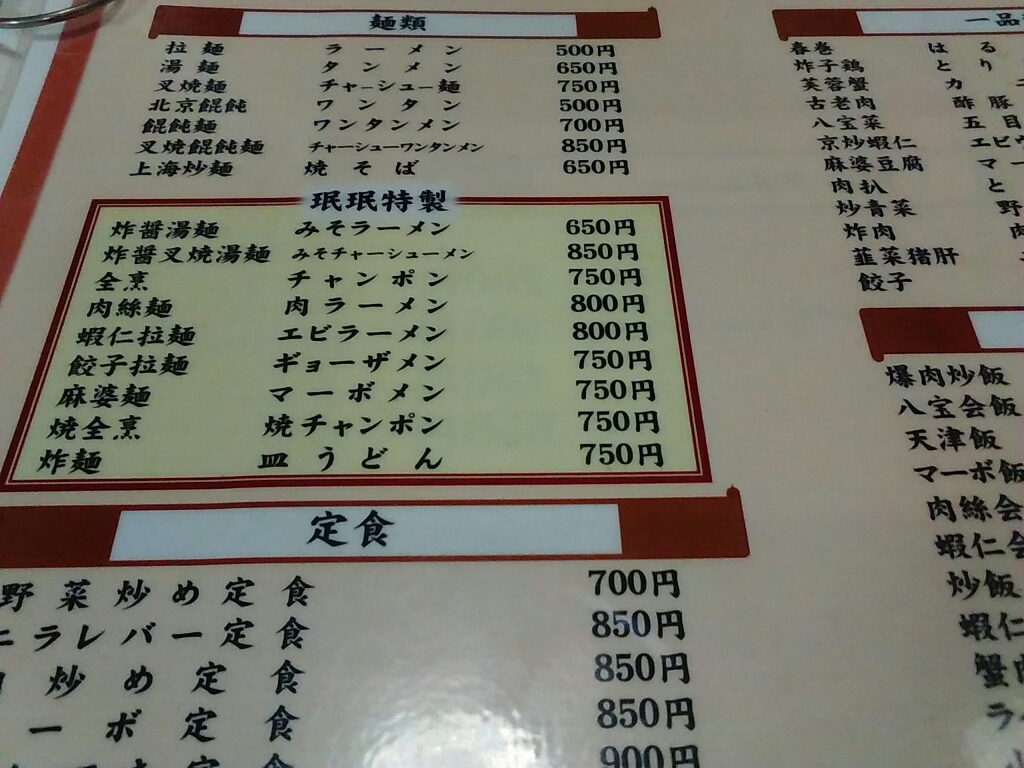 麺類
拉麺 ラーメン 500円
湯麺 タンメン 650円
叉焼麺 チャーシュー麺 750円
北京餛飩 ワンタン 500円
餛飩麺 ワンタンメン 700円
叉焼餛飩麺 チャーシューワンタンメン 850円
上海炒麺 焼そば 650円
珉珉特製
炸醤湯麺 みそラーメン 650円
炸醤叉焼湯麺 みそチャーシューメン 850円
全烹 チャンポン 750円
肉絲麺 肉ラーメン 800円
蝦仁拉麺 エビラーメン 800円
餃子拉麺 ギョーザメン 750円
麻婆麺 マーボメン 750円
焼全烹 焼チャンポン 750円
炸麺 皿うどん 750円
定食
野菜炒め定食 700円
ニラレバー定食 850円
炒め定食 850円
ーボ定食 850円
定食 900円
一品
春巻 はる
炸子鶏 とり
芙蓉蟹 カニ
古老肉 酢豚
八宝菜 五目
京炒蝦仁 エビ
麻婆豆腐 マー
肉扒 と
炒青菜 野
炸肉 肉
韮菜猪肝
餃子
爆肉炒飯
八宝会飯
天津飯
マーボ飯
肉絲会
蝦仁会
炒飯
蝦仁
蟹肉
ラ